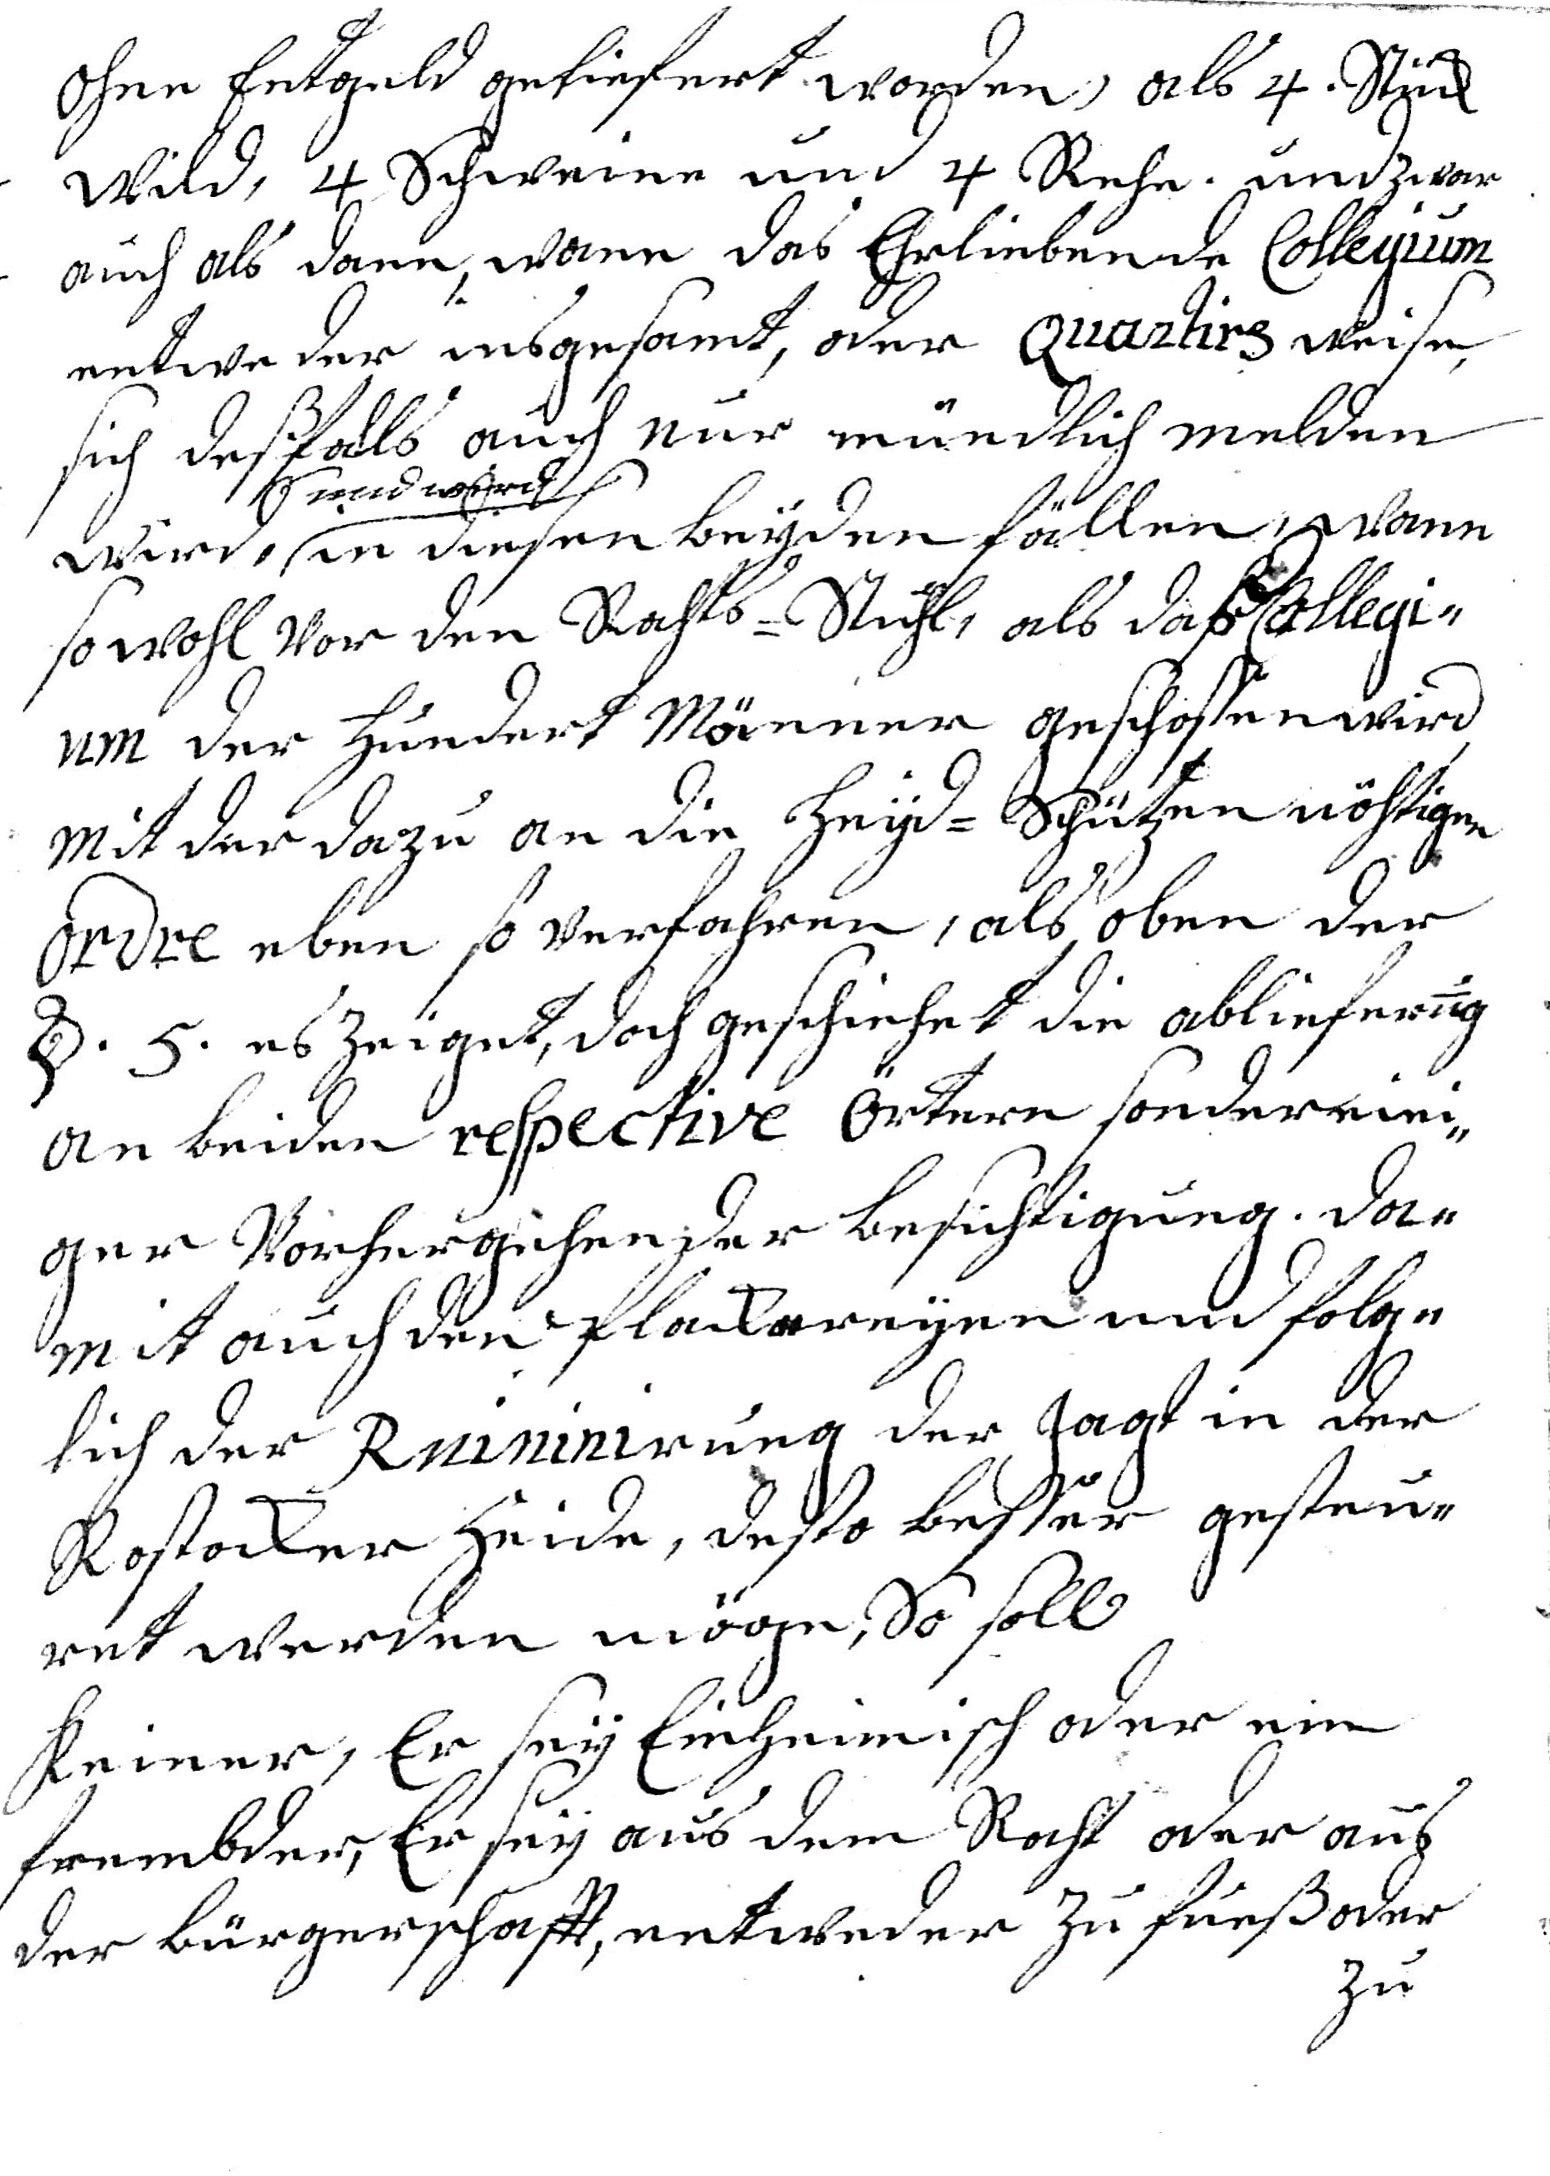 ohne Entgeld geliefert worden, als 4. Stück
Wild, 4 Schweine und 4 Rehe. und zwar
auch als dann, wann das Ehrliebende Collegium
entweder insgesamt, oder Quartirs weise,
sich deßfals auch nur mündlich melden
und wird
wird, in diesen beyden fällen, wann
so wohl vor den Rahts=Stuhl, als daß Collegi„
um der Hundert Männer geschossen wird
mit der dazu an die Heyd=Schützen nöhtigen
Ordre eben so verfahren, als oben der
§. 5. es zeiget, doch geschiehet die ablieferūg
an beiden respective Örtern sonder eini„
ger Vorhergehender besichtigung. Da„
mit auch den Plackereyen und folg„
lich der Ruinirung der Jagt in der
Rostocker Heide, desto besser gesteu„
ret werden möge, So soll
Keiner, Er sey Einheimisch oder ein
frembder, Er sey aus dem Raht oder aus
der bürgerschafft, entweder zu fueß oder
zu